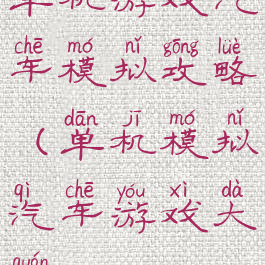 车机游戏汽
chē mó nǐ gōng lüè
车模拟攻略
dān jī mó nǐ
（单机模拟
qì chē yóu xì dà
汽车游戏大
quán